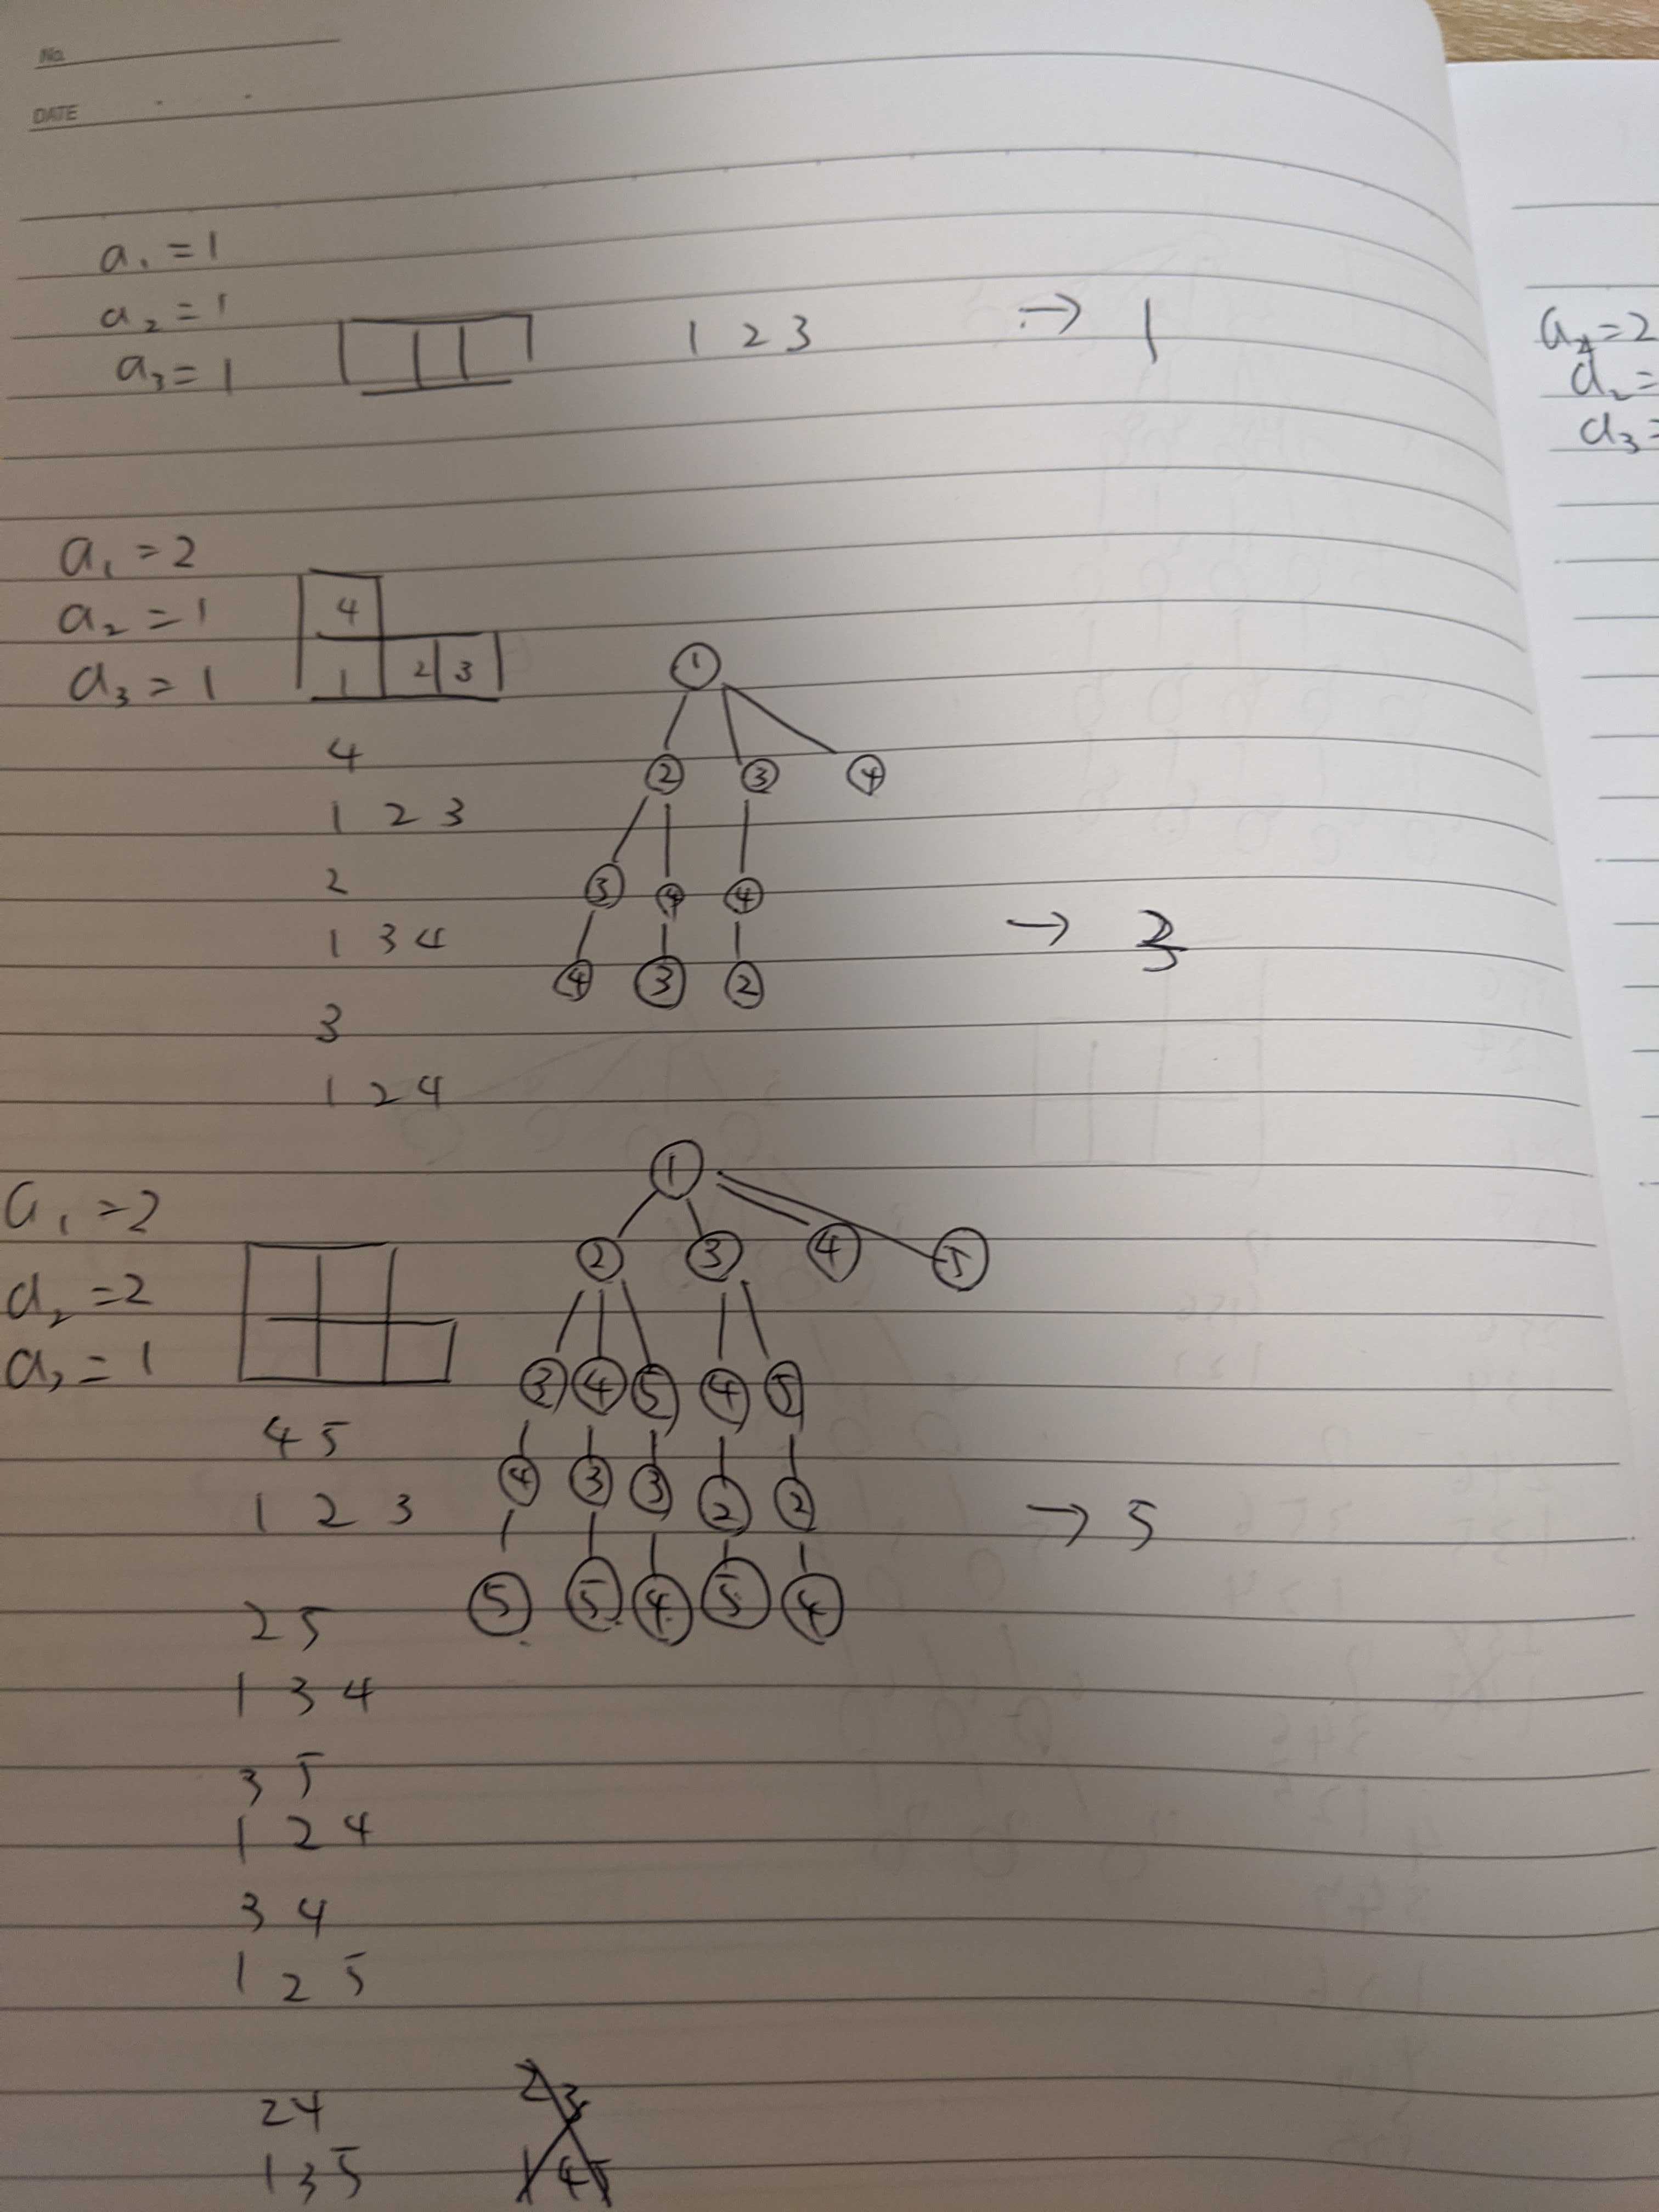 No.
DATE
a₁ = 1
a₂ = 1
a₃ = 1
1 2 3 → 1
a₁ = 2
a₂ = 1
a₃ = 1
4
1 2 3
4
1 2 3
2
1 3 4
3
1 2 4
1
2 3 4
3 4 4
4 3 2
→ 3
a₁ = 2
a₂ = 2
a₃ = 1
4 5
1 2 3
2 5
1 3 4
3 5
1 2 4
3 4
1 2 5
2 4
1 3 5
2 3
1 4 5
1
2 3 4 5
3 4 5 4 5
4 3 3 2 2
5 5 4 5 4
→ 5
a₁ = 2
a₂ =
a₃ =